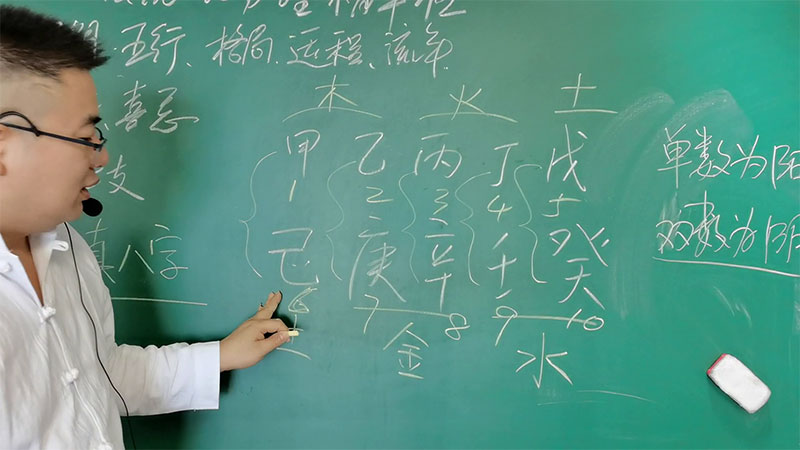 五行、格局、运程、流年
喜忌
木 火 土
甲 乙 丙 丁 戊
1 2 3 4 5
支
己 庚 辛 壬 癸
6 7 8 9 10
真八字
金 水
单数为阳
双数为阴